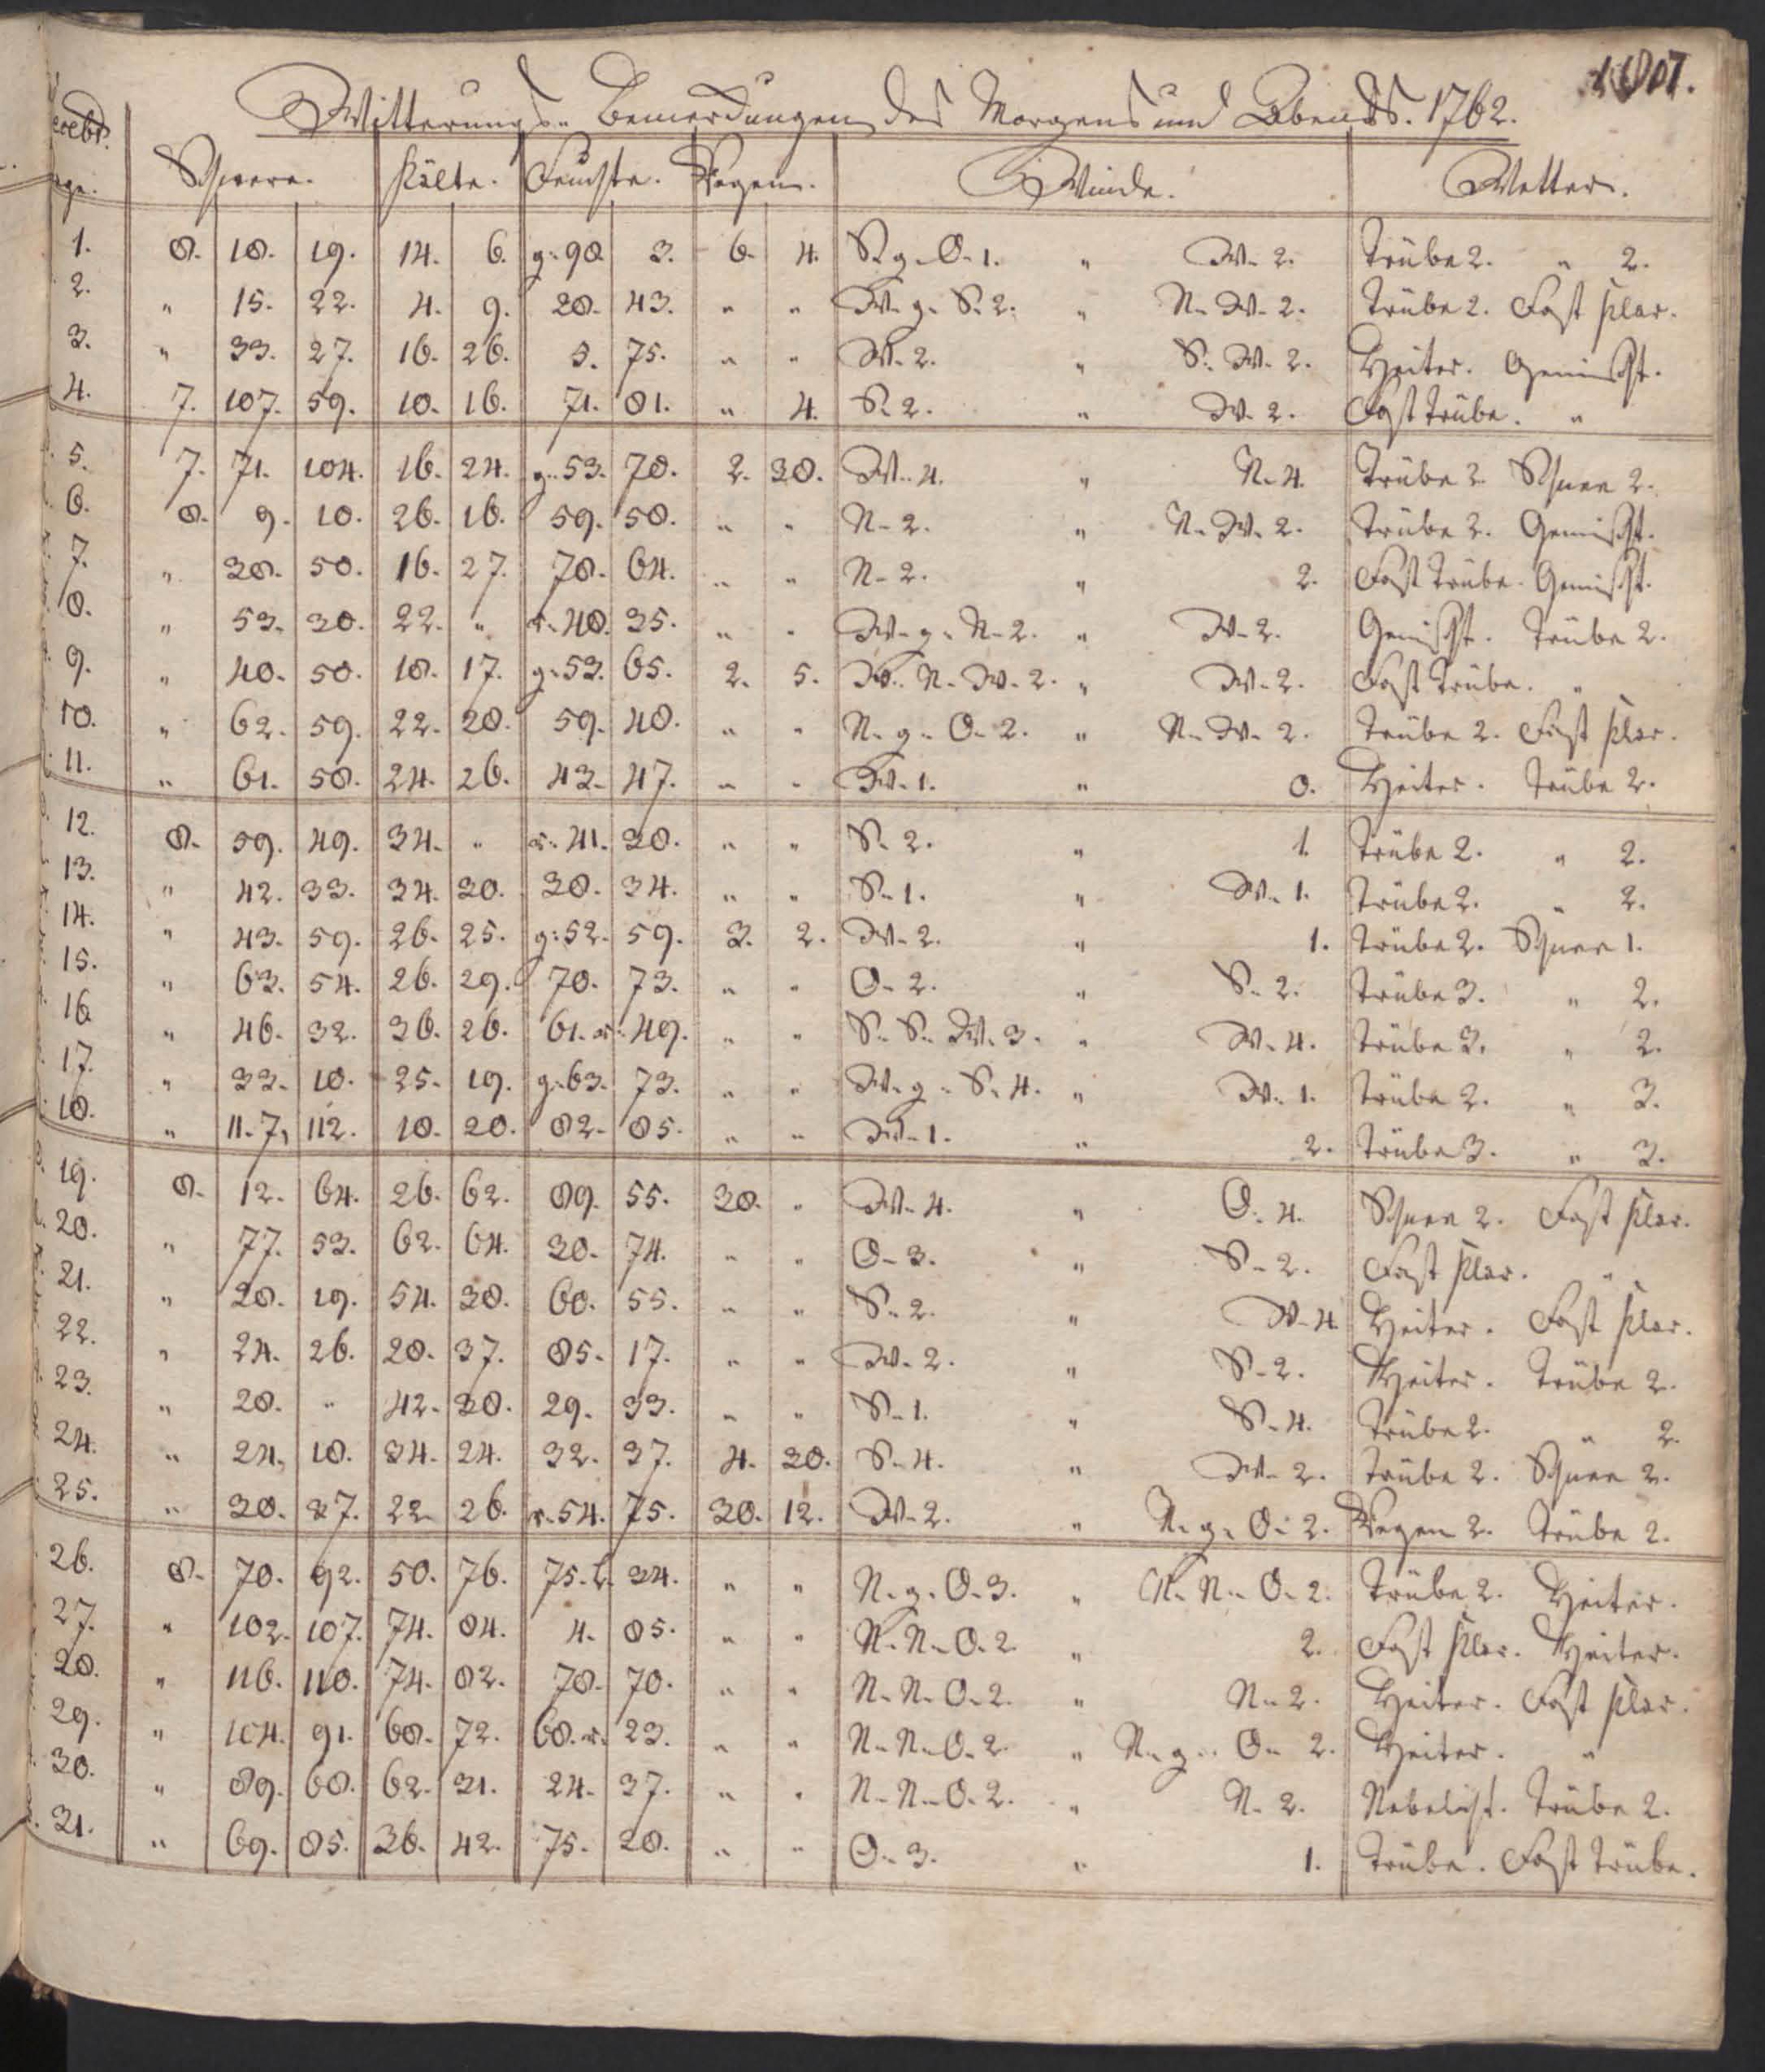 Witterungs- Bemerckungen des Morgens und Abends. 1762.
Schwere. Kälte. Feuchte. Regen. Winde. Wetter.
1. 8. 18. 19. 14. 6. g. 98 3. 6. 4. S. g. O. 1. " W. 2. Trübe 2. " 2.
2. " 15. 22. 4. 9. 28. 43. " " W. g. S. 2. " N. W. 2. Trübe 2. Fast klar.
3. " 33. 27. 16. 26. 5. 75. " " W. 2. " S. W. 2. Heiter. Gemischt.
4. 7. 107. 59. 10. 16. 71. 81. " 4. S. 2. " W. 2. Fast Trübe. "
5. 7. 71. 104. 16. 24. g. 53. 78. 2. 38. W. 4. " N. 4. Trübe 2. Schnee 2.
6. 8. 9. 10. 26. 16. 59. 58. " " N. 2. " N. W. 2. Trübe 2. Gemischt.
7. " 38. 50. 16. 27. 78. 64. " " N. 2. " 2. Fast Trübe. Gemischt.
8. " 53. 30. 22. " r. 48. 35. " " W. g. N. 2. " W. 2. Gemischt. Trübe 2.
9. " 40. 50. 18. 17. g. 53. 65. 2. 5. W. N. W. 2. " W. 2. Fast Trübe. "
10. " 62. 59. 22. 28. 59. 48. " " N. g. O. 2. " N. W. 2. Trübe 2. Fast klar.
11. " 61. 58. 24. 26. 43. 47. " " W. 1. " 0. Heiter. Trübe 2.
12. 8. 59. 49. 34. " r. 41. 38. " " S. 2. " 1. Trübe 2. " 2.
13. " 42. 33. 34. 30. 38. 34. " " S. 1. " W. 1. Trübe 2. " 2.
14. " 43. 59. 26. 25. g. 52. 59. 3. 2. W. 2. " 1. Trübe 2. Schnee 1.
15. " 63. 54. 26. 29. 70. 73. " " O. 2. " S. 2. Trübe 3. " 2.
16. " 46. 32. 36. 26. 61. r. 49. " " S. S. W. 3. " W. 4. Trübe 3. " 2.
17. " 33. 10. 25. 19. g. 63. 73. " " W. g. S. 4. " W. 1. Trübe 2. " 3.
18. " 11. 7, 112. 18. 20. 82. 85. " " W. 1. " 2. Trübe 3. " 3.
19. 8. 12. 64. 26. 62. 89. 55. 38. " W. 4. " O. 4. Schnee 2. Fast klar.
20. " 77. 53. 62. 64. 30. 74. " " O. 3. " S. 2. Fast klar. "
21. " 28. 19. 54. 38. 60. 55. " " S. 2. " W. 4. Heiter. Fast klar.
22. " 24. 26. 28. 37. 85. 17. " " W. 2. " S. 2. Heiter. Trübe 2.
23. " 28. " 42. 38. 29. 33. " " S. 1. " S. 4. Trübe 2. " 2.
24. " 24. 18. 34. 24. 32. 37. 4. 30. S. 4. " W. 2. Trübe 2. Schnee 2.
25. " 30. 37. 22. 26. r. 54. 75. 30. 12. W. 2. " N. g. O. 2. Regen 2. Trübe 2.
26. 8. 70. 92. 50. 76. 75. 34. " " N. g. O. 3. " N. N. O. 2. Trübe 2. Heiter.
27. " 102. 107. 74. 84. 4. 85. " " N. N. O. 2. " 2. Fast klar. Heiter.
28. " 116. 110. 74. 82. 78. 70. " " N. N. O. 2. " N. 2. Heiter. Fast klar.
29. " 104. 91. 68. 72. 68. r. 23. " " N. N. O. 2. " N. g. O. 2. Heiter. "
30. " 89. 68. 62. 31. 24. 37. " " N. N. O. 2. " N. 2. Nebelicht. Trübe 2.
31. " 69. 85. 36. 42. 75. 28. " " O. 3. " 1. Trübe. Fast Trübe.